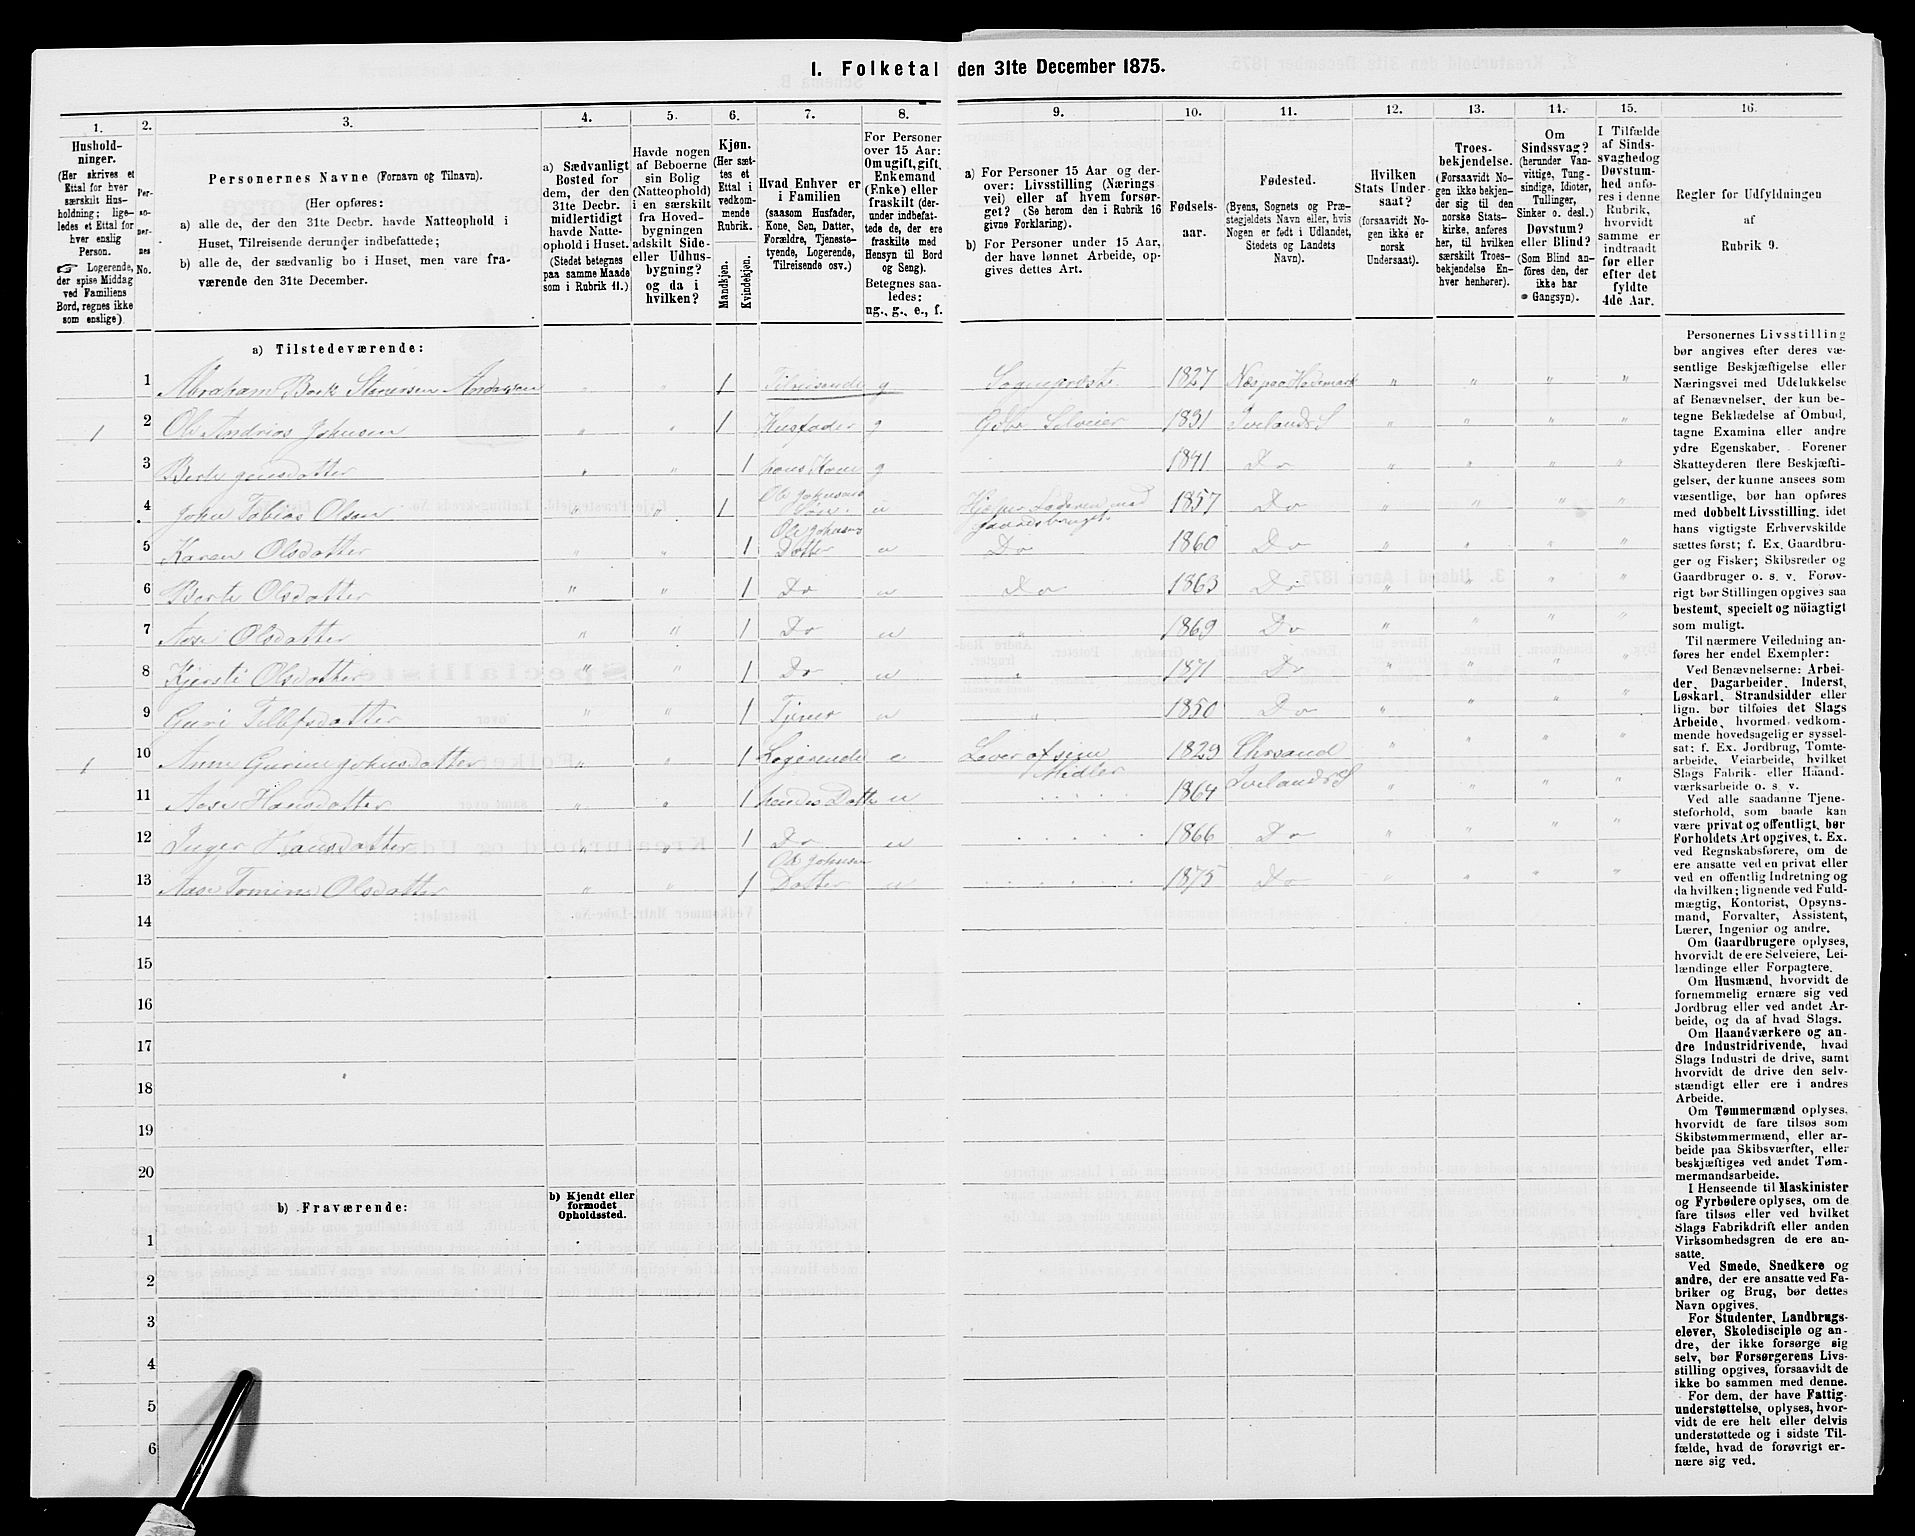 I. Folketal den 31te December 1875.
1. 2. 3. 4. 5. 6. 7. 8. 9. 10. 11. 12. 13. 14. 15. 16.
Hushold-
ninger.
(Her skrives et
Ettal for hver
særskilt Hus-
holdning; lige-
ledes et Ettal for
hver enslig
Person.
☞ Logerende,
der spise Middag
ved Familiens
Bord, regnes ikke
som enslige).
Per-
so-
ner-
nes
No.
Personernes Navne (Fornavn og Tilnavn).
(Her opføres:
a) alle de, der den 31te Decbr. havde Natteophold i
Huset, Tilreisende derunder indbefattede;
b) alle de, der sædvanlig bo i Huset, men vare fra-
værende den 31te December.
a) Sædvanligt
Bosted for
dem, der den
31te Decbr.
midlertidigt
havde Natte-
ophold i Huset.
(Stedet betegnes
paa samme Maade
som i Rubrik 11.)
Havde nogen
af Beboerne
sin Bolig
(Natteophold)
i en særskilt
fra Hoved-
bygningen
adskilt Side-
eller Udhus-
bygning?
og da i
hvilken?
Kjøn.
(Her sæt-
tes et
Ettal i
vedkom-
mende
Rubrik.
Mandkjøn.
Kvindekjøn.
Hvad Enhver er
i Familien
(saasom Husfader,
Kone, Søn, Datter,
Forældre, Tjeneste-
tyende, Logerende,
Tilreisende osv.)
For Personer
over 15 Aar:
Om ugift, gift,
Enkemand
(Enke) eller
fraskilt (der-
under indbefat-
tede de, der ere
fraskilte med
Hensyn til Bord
og Seng).
Betegnes saa-
ledes:
ug., g., e., f.
a) For Personer 15 Aar og der-
over: Livsstilling (Nærings-
vei) eller af hvem forsør-
get? (Se herom den i Rubrik 16
givne Forklaring).
b) For Personer under 15 Aar,
der have lønnet Arbeide, op-
gives dettes Art.
Fødsels-
aar.
Fødested.
(Byens, Sognets og Præ-
stegjeldets Navn eller, hvis
Nogen er født i Udlandet,
Stedets og Landets
Navn).
Hvilken
Stats Under-
saat?
(forsaavidt No-
gen ikke er
norsk
Undersaat).
Troes-
bekjendelse.
(Forsaavidt No-
gen ikke bekjen-
der sig til den
norske Stats-
kirke, anføres
her, til hvilken
særskilt Troes-
bekjendelse En-
hver henhører).
Om
Sindssvag?
(herunder Van-
vittige, Tung-
sindige, Idioter,
Tullinger,
Sinker o. desl.)
Døvstum?
eller Blind?
(Som Blind an-
føres den, der
ikke har
Gangsyn).
I Tilfælde
af Sinds-
svaghed og
Døvstum-
hed anfø-
res i denne
Rubrik,
hvorvidt
samme er
indtraadt
før eller
efter det
fyldte
4de Aar.
Regler for Udfyldningen
af
Rubrik 9.
a) Tilstedeværende:
1 Abraham Bork Andersen 1 Tilreisende g Sogneprest 1827 Næs paa Hedemark
1 2 Ole Andrias Johnsen 1 Husfader g Gdbr Selveier 1831 Ivelands S
3 Berte Jensdatter 1 hans Kone g 1841 Do
4 John Tobias Olsen 1 Ole Johnsens Søn u Hjelper Faderen med Gaardsbruget 1857 Do
5 Karen Olsdatter 1 Ole Johnsens Datter u Do 1860 Do
6 Berte Olsdatter 1 Do u Do 1863 Do
7 Aase Olsdatter 1 Do u 1869 Do
8 Kjersti Olsdatter 1 Do u 1871 Do
9 Guri Tellefsdatter 1 Tjener u 1850 Do
1 10 Anne Gurine Johnsdatter 1 Logerende e Lever af sine Midler 1829 Chrsand
11 Aase Hansdatter 1 hendes Datter u 1864 Ivelands S
12 Inger Hansdatter 1 Do u 1866 Do
13 Aase Tomine Olsdatter 1 Ole Johnsen Datter u 1875 Do
14
15
16
17
18
19
20
b) Fraværende:
b) Kjendt eller
formodet
Opholdssted.
1
2
3
4
5
6
Personernes Livsstilling
bør angives efter deres væ-
sentlige Beskjæftigelse eller
Næringsvei med Udelukkelse
af Benævnelser, der kun be-
tegne Beklædelse af Ombud,
tagne Examina eller andre
ydre Egenskaber. Forener
Skatteyderen flere Beskjæfti-
gelser, der kunne ansees som
væsentlige, bør han opføres
med dobbelt Livsstilling, idet
hans vigtigste Erhvervskilde
sættes først; f. Ex. Gaardbru-
ger og Fisker; Skibsreder og
Gaardbruger o. s. v. Forøv-
rigt bør Stillingen opgives saa
bestemt, specielt og nöiagtigt
som muligt.
Til nærmere Veiledning an-
føres her endel Exempler:
Ved Benævnelserne: Arbei-
der, Dagarbeider, Inderst,
Løskarl, Strandsidder eller
lign. bør tilføies det Slags
Arbeide, hvormed vedkom-
mende hovedsagelig er syssel-
sat: f. Ex. Jordbrug, Tomte-
arbeide, Veiarbeide, hvilket
Slags Fabrik- eller Haand-
værksarbeide o. s. v.
Ved alle saadanne Tjene-
steforhold, som baade kan
være privat og offentligt, bør
Forholdets Art opgives, t. Ex.
ved Regnskabsførere, om de
ere ansatte ved en privat eller
ved en offentlig Indretning og
da hvilken; lignende ved Fuld-
mægtig, Kontorist, Opsyns-
mand, Forvalter, Assistent,
Lærer, Ingeniør og andre.
Om Gaardbrugere oplyses,
hvorvidt de ere Selveiere, Lei-
lændinge eller Forpagtere.
Om Husmænd, hvorvidt de
fornemmelig ernære sig ved
Jordbrug eller ved andet Ar-
beide, og da af hvad Slags.
Om Haandværkere og an-
dre Industridrivende, hvad
Slags Industri de drive, samt
hvorvidt de drive den selv-
stændigt eller ere i andres
Arbeide.
Om Tømmermænd oplyses,
hvorvidt de fare tilsøs som
Skibstømmermænd, eller ar-
beide paa Skibsværfter, eller
beskjæftiges ved andet Tøm-
mermandsarbeide.
I Henseende til Maskinister
og Fyrbødere oplyses, om de
fare tilsøs eller ved hvilket
Slags Fabrikdrift eller anden
Virksomhedsgren de ere an-
satte.
Ved Smede, Snedkere og
andre, der ere ansatte ved Fa-
briker og Brug, bør dettes
Navn opgives.
For Studenter, Landbrugs-
elever, Skoledisciple og an-
dre, der ikke forsørge sig
selv, bør Forsørgerens Livs-
stilling opgives, forsaavidt de
ikke bo sammen med denne.
For dem, der have Fattig-
understøttelse, oplyses, hvor-
vidt de ere helt eller delvis
understøttede og i sidste Til-
fælde, hvad de forøvrigt er-
nære sig ved.